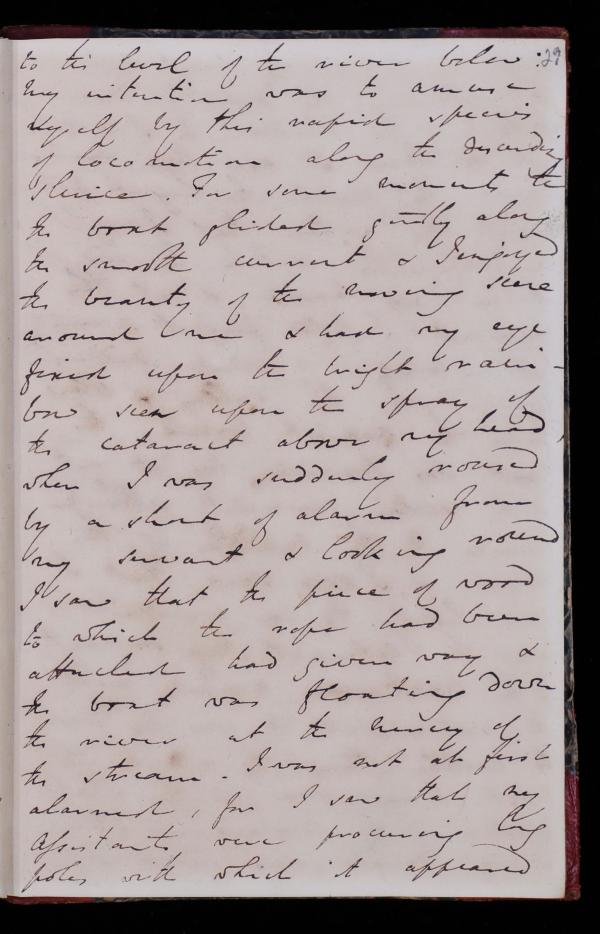 to the level of the river below: 29
my intention was to amuse
myself by this rapid species
of locomotion along the descending
sluice. For some moments the
the boat glided gently along
the smooth current & I enjoyed
the beauty of the moving scene
around me & had my eye
fixed upon the bright rain-
bow seen upon the spray of
the cataract above my head,
when I was suddenly roused
by a shout of alarm from
my servant & looking round
I saw that the piece of wood
to which the rope had been
attached had given way &
the boat was floating down
the river at the mercy of
the stream. I was not at first
alarmed, for I saw that my
assistants were procuring long
poles with which it appeared